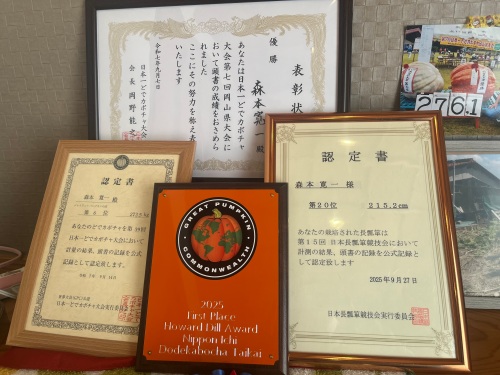 表彰状
優勝
森本寛一殿
あなたは日本一どでカボチャ
大会第七回岡山県大会に
おいて頭書の成績をおさめら
れました
ここにその努力を称え表
いたします
令和七年九月七日
日本一どでカボチャ大会
会長 岡野能之
2761
認定書
森本 寛一 様
あなたのどでカボチャを第
一どでカボチャ大会において
計量の結果、頭書の記録を公式記
録として認定致します。
一どでカボチャ大会実行委員会
GREAT PUMPKIN
COMMONWEALTH
2025
First Place
Howard Dill Award
Nippon Ichi
Dodekabocha Taikai
認定書
森本 寛一 様
第20位 215.2cm
あなたの栽培された長瓢箪は
第15回 日本長瓢箪競技会において
計測の結果、頭書の記録を公式記録
として認定致します
2025年9月27日
日本長瓢箪競技会実行委員会